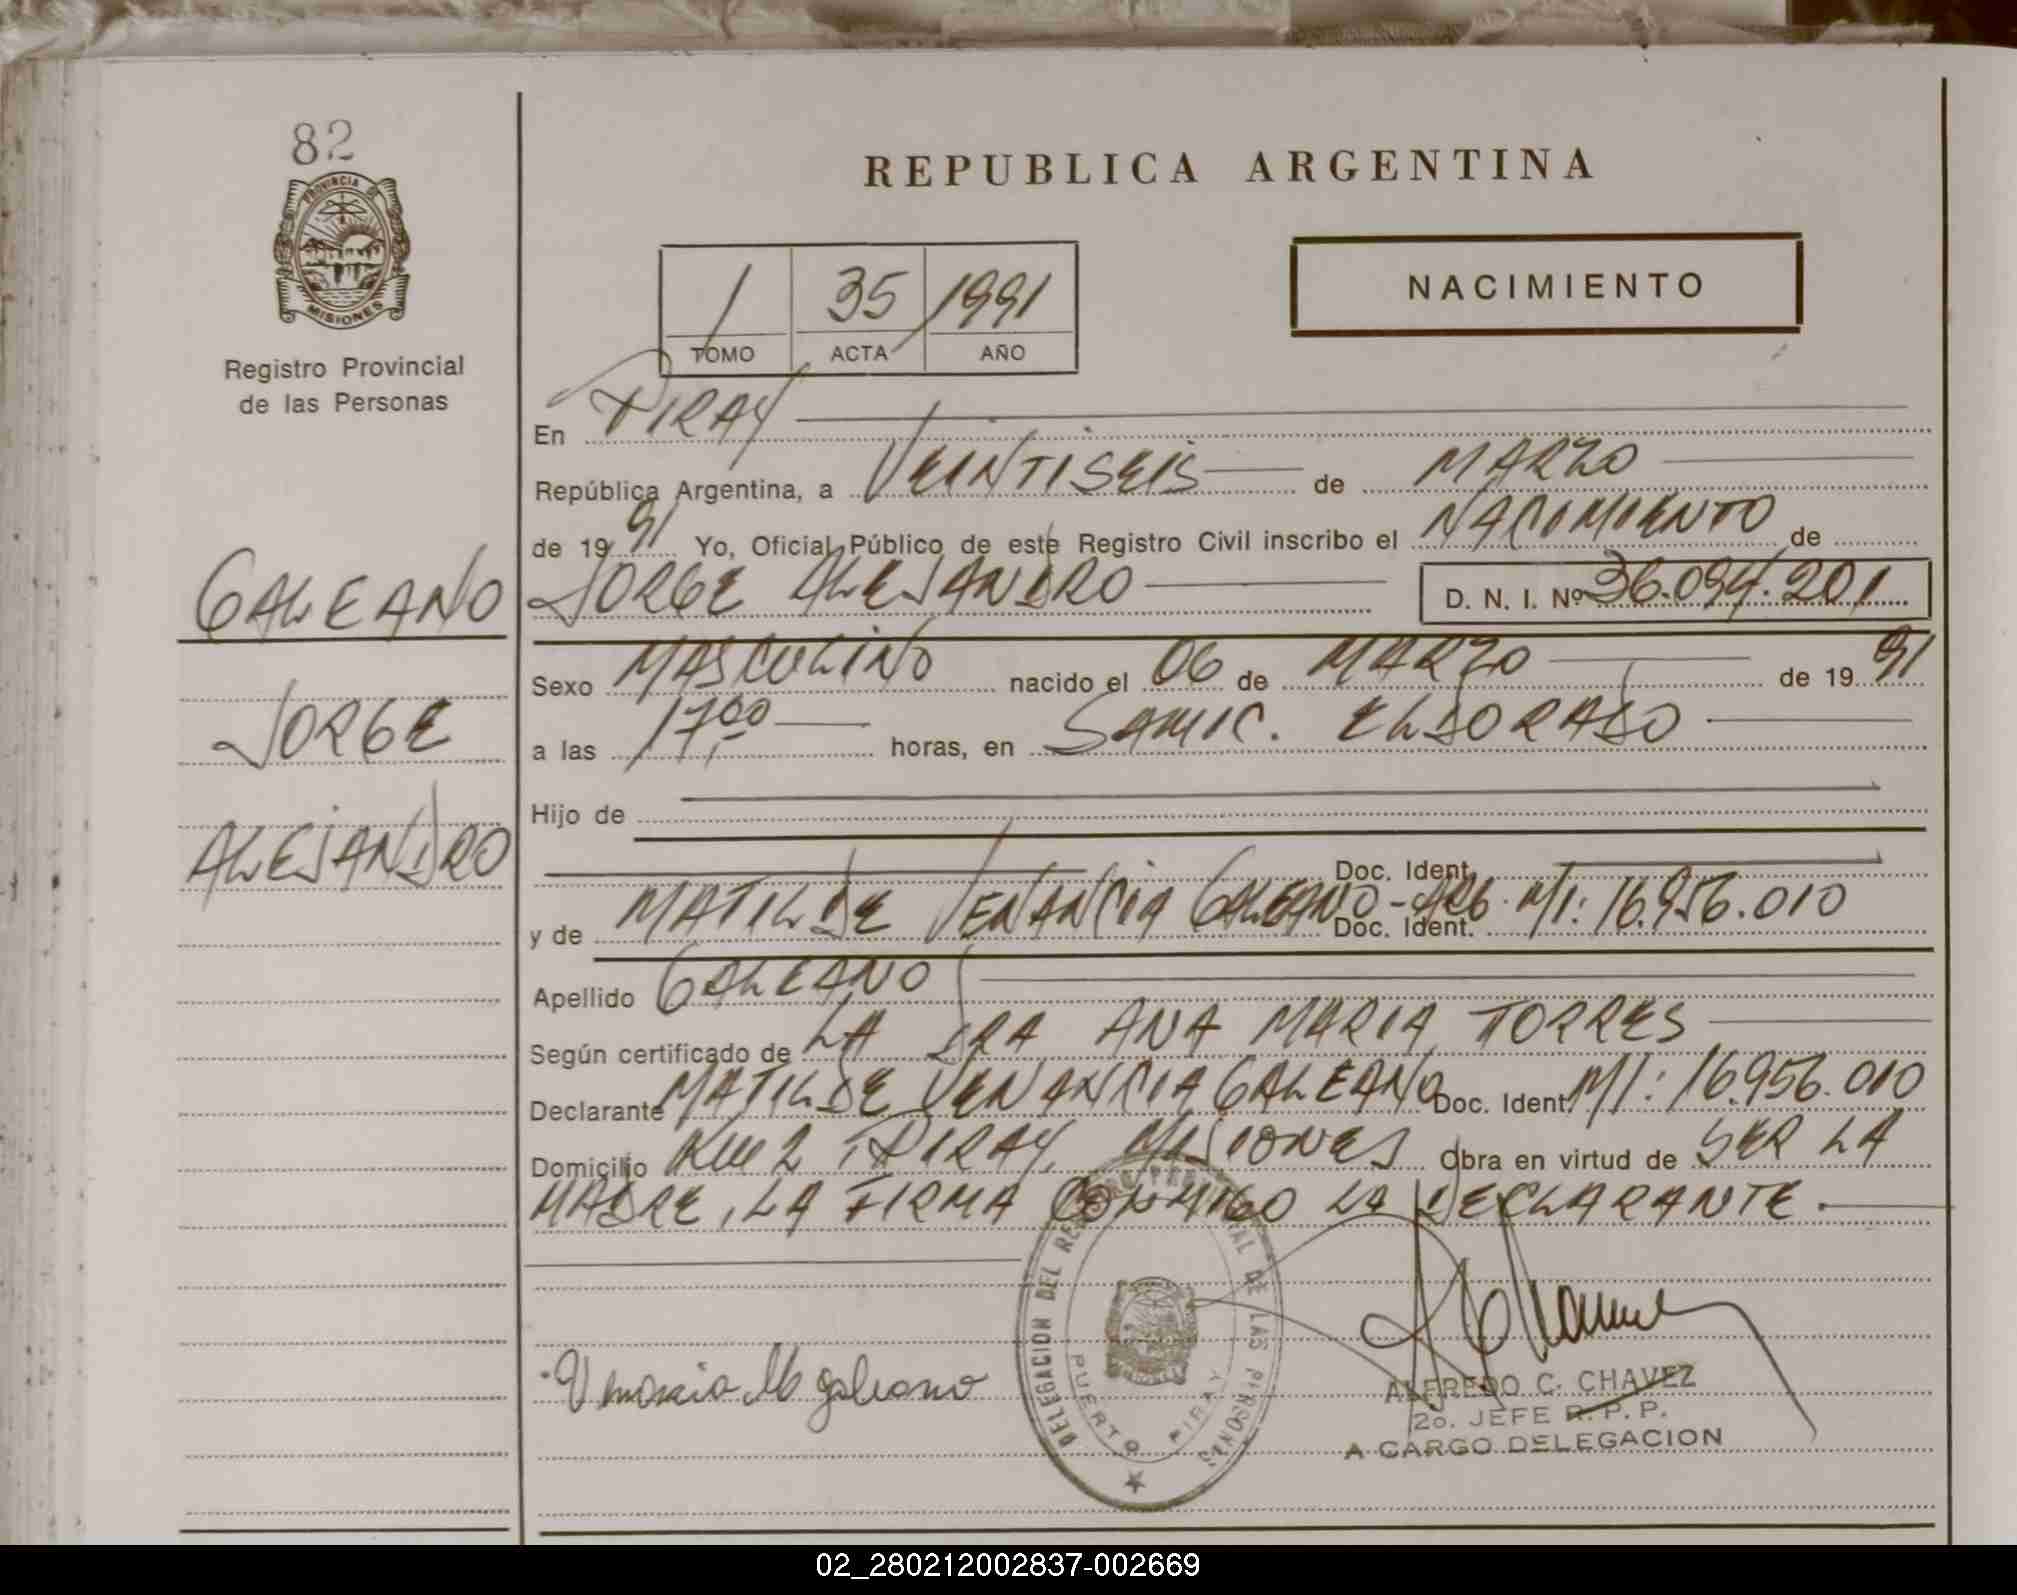 82
PROVINCIA DE
MISIONES
Registro Provincial
de las Personas
GALEANO
JORGE
ALEJANDRO
REPUBLICA ARGENTINA
NACIMIENTO
1 35 1991
TOMO ACTA AÑO
En PIRAY
República Argentina, a VEINTISEIS de MARZO
de 1991 Yo, Oficial Público de este Registro Civil inscribo el NACIMIENTO de
JORGE ALEJANDRO D. N. I. Nº 36.094.201
Sexo MASCULINO nacido el 06 de MARZO de 1991
a las 17,00 horas, en SAMIC. ELDORADO
Hijo de
Doc. Ident.
y de MATILDE VENANCIA GALEANO - ARG. MI: 16.956.010
Doc. Ident.
Apellido GALEANO
Según certificado de LA DRA ANA MARIA TORRES
Declarante MATILDE VENANCIA GALEANO Doc. Ident. MI: 16.956.010
Domicilio Km 2 PIRAY, MISIONES Obra en virtud de SER LA
MADRE, LA FIRMA CONMIGO LA DECLARANTE.
Venancia M galeano
DELEGACION DEL REGISTRO PROVINCIAL DE LAS PERSONAS
PUERTO PIRAY
ALFREDO C. CHAVEZ
2o. JEFE R. P. P.
A CARGO DELEGACION
02_280212002837-002669